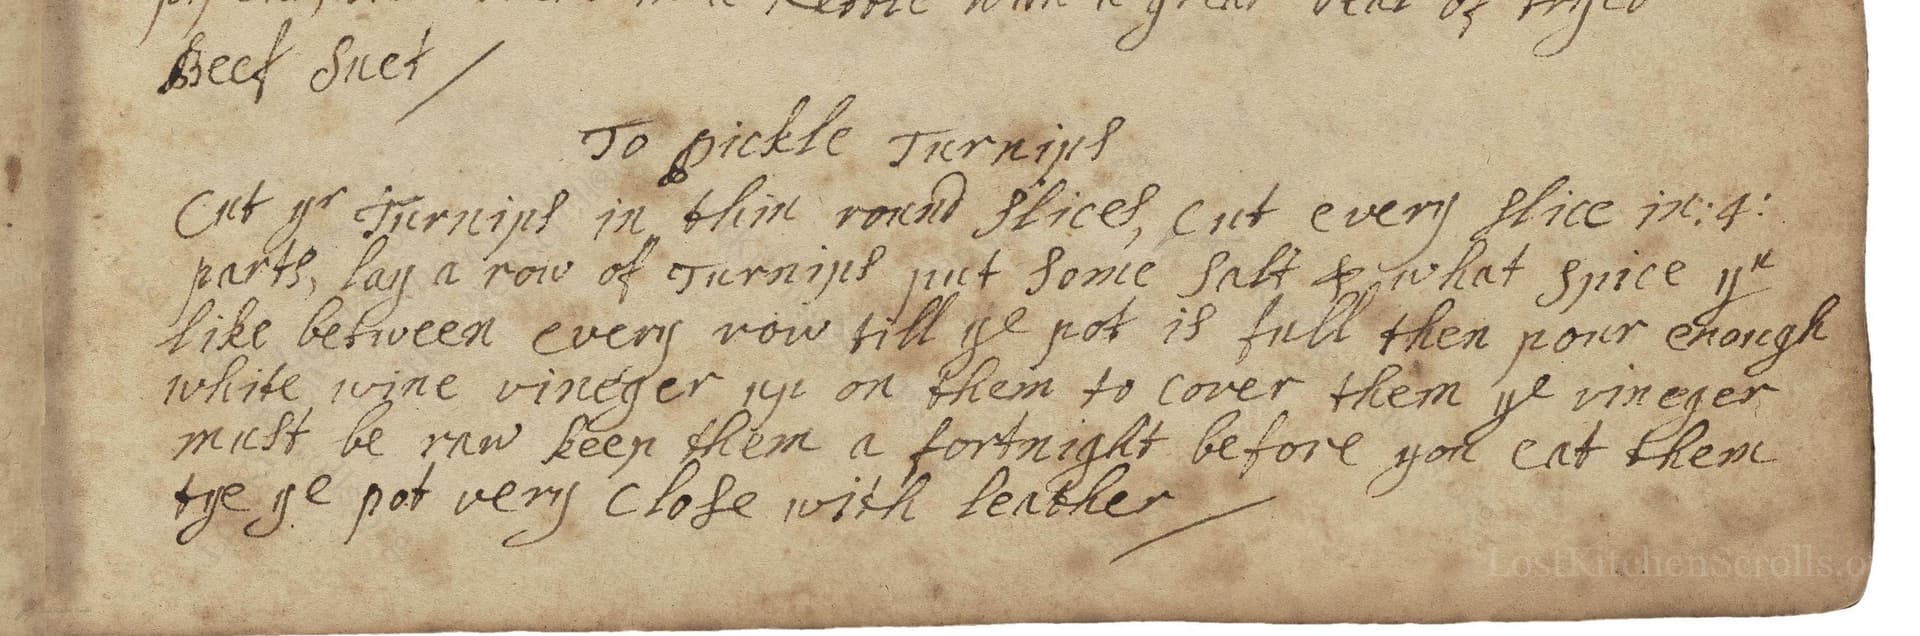 kettle with a great deal of tryed
Beef Suet/
To Pickle Turnips
Cut yr Turnips in thin round slices, Cut every slice in:4:
parts, lay a row of Turnips put some salt & what spice yu
like between every row till ye pot is full then pour enough
white wine vineger up on them to cover them ye vineger
must be raw keep them a fortnight before you eat them
tye ye pot very Close with leather/
LostKitchenScrolls.o